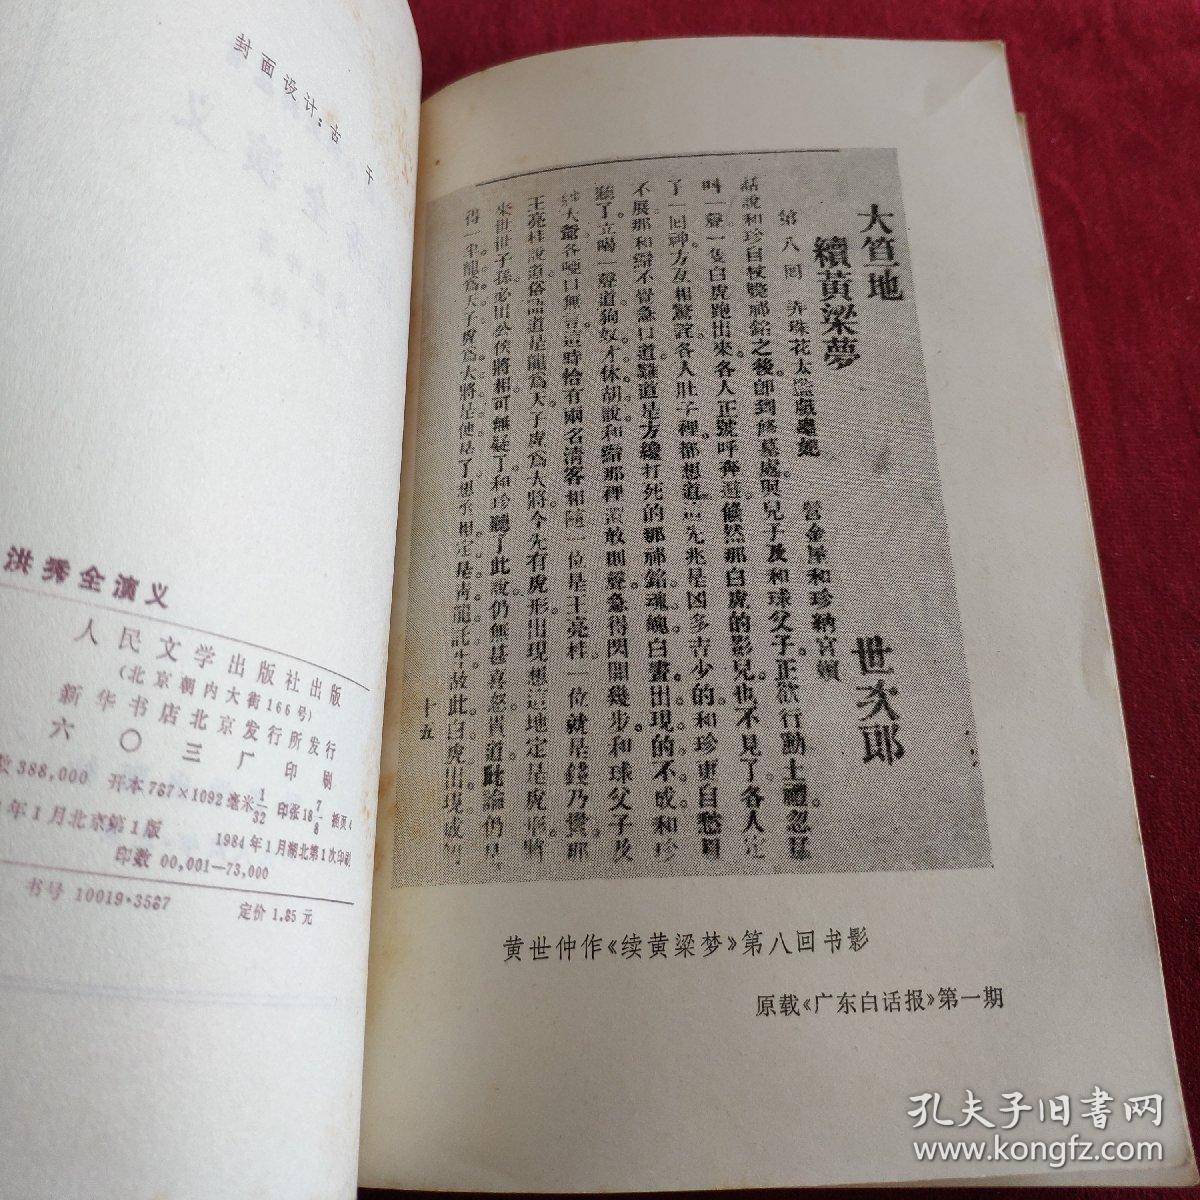 封面设计：古干
洪秀全演义
人民文学出版社出版
（北京朝内大街166号）
新华书店北京发行所发行
六〇三厂印刷
数388,000 开本787×1092毫米1/32 印张18 7/8 插页4
年1月北京第1版 1984年1月湖北第1次印刷
印数 00,001—73,000
书号 10019·3567 定价 1.85 元
大笪地
續黃梁夢 世次郎
第八回 弄珠花太監戲蟲妮 營金屋和珍納官嬪
話說和珍自杖斃祁銘之後卽到移墓處與兒子及和球父子正欲行動土禮忽聞
叫一聲一隻白虎跑出來各人正號呼奔避倏然那白虎的影兒也不見了各人定
了一回神方互相驚詫各人肚子裡都想道這兆是凶多吉少的和珍更自愁眉
不展那和辯不覺急口道難道是方纔打死的那祁銘魂魄白晝出現的不成和珍
聽了立喝一聲道狗奴才休胡說和辯那裡還敢則聲急得閃開幾步和球父子及
大爺各啞口無言這時恰有兩名淸客相隨一位是王亮桂一位就是錢乃貫那
王亮桂說道俗語道是龍爲天子虎爲大將今先有虎形出現想這地定是虎形將
來世世子孫必出公侯將相可無疑了和珍聽了此說仍無甚喜怒貫道此論仍是
得一半龍爲天子虎爲大將是便是了想丞相定是靑龍託生故此白虎出現成
十五
黄世仲作《续黄粱梦》第八回书影
原载《广东白话报》第一期
孔夫子旧书网
www.kongfz.com